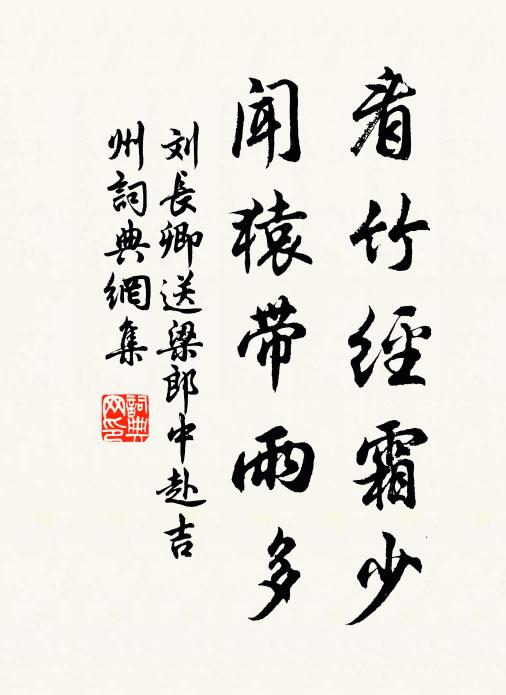 看竹經霜少
聞猿帶雨多
刘長卿送梁郎中赴吉
州詞典網集
詞典
网印